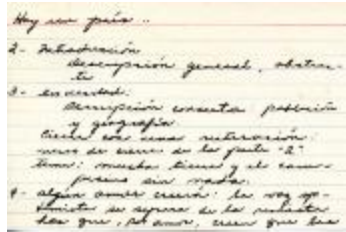 Hay un país..
2- Introducción
descripción general, abstrac-
ta
3- en verdad:
descripción concreta población
y geografía.
Cierra con una reiteración:
verso de cierre de la parte "2"
tema: mucha tierra y el cam-
pesino sin nada.
4- algún amor creerá: la voz op-
timista se separa de la
los que, por amor, creen que los